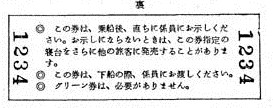 裏
1234
◎ この券は、乗船後、直ちに係員にお示しくだ
さい。お示しにならないときは、この券指定の
寝台をさらに他の旅客に発売することがありま
す。
◎ この券は、下船の際、係員にお渡しください。
◎ グリーン券は、必要がありません。
1234